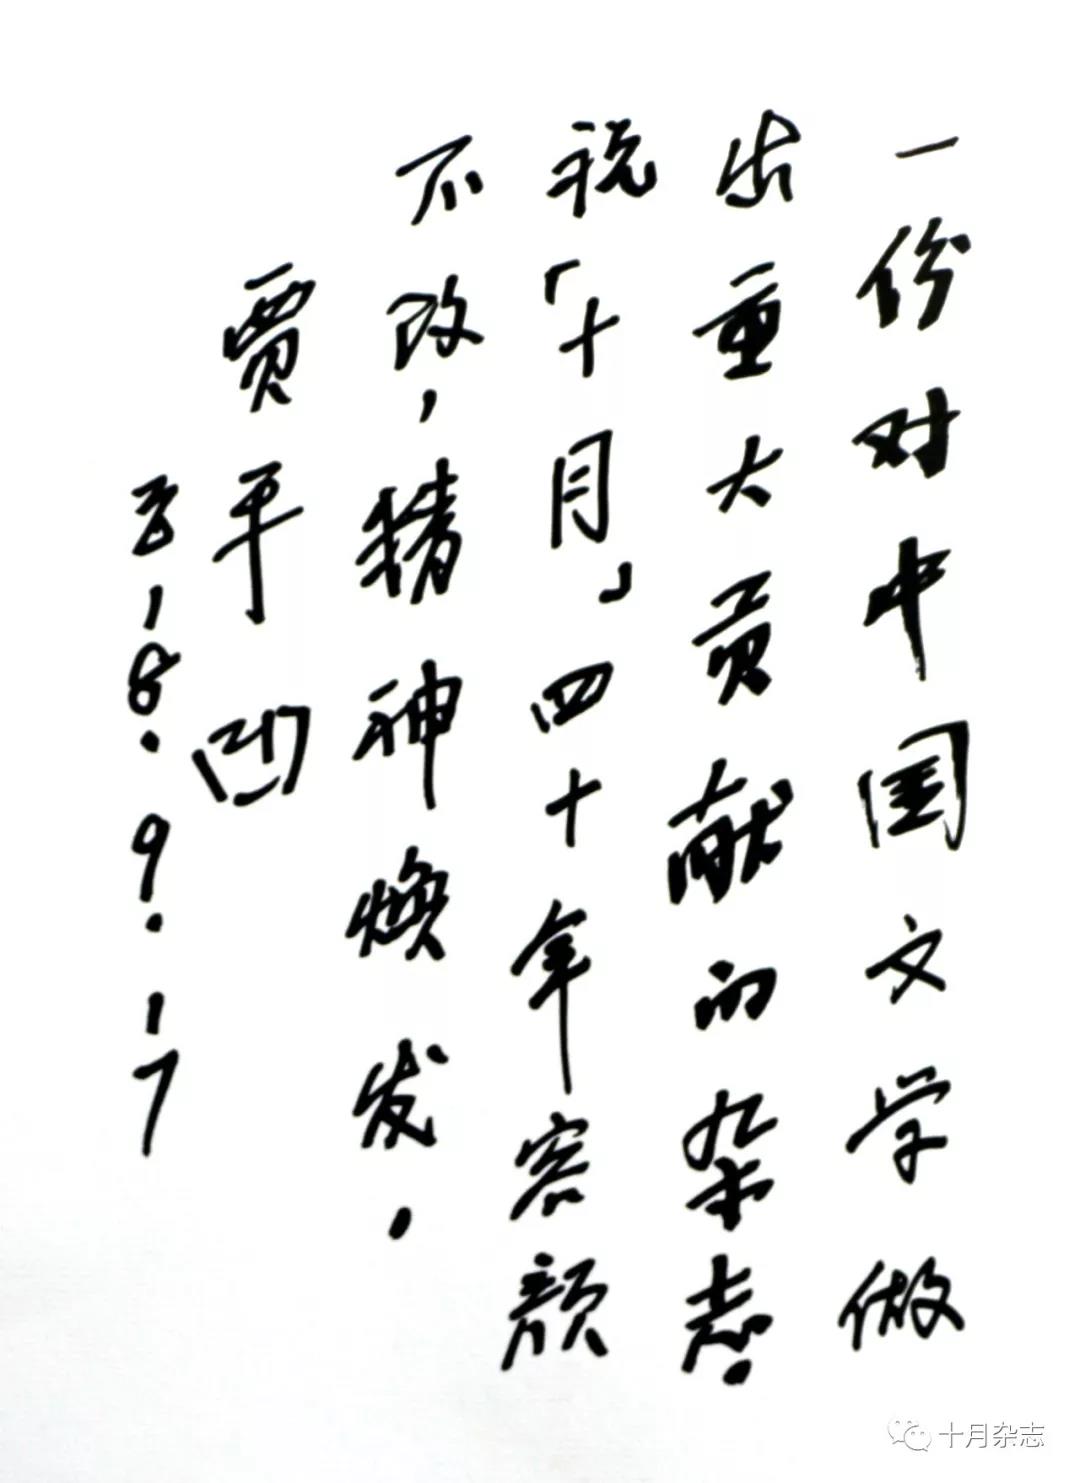 一份对中国文学做
出重大贡献的杂志.
祝「十月」四十年容颜
不改,精神焕发.
贾平凹
2018.9.17
十月杂志